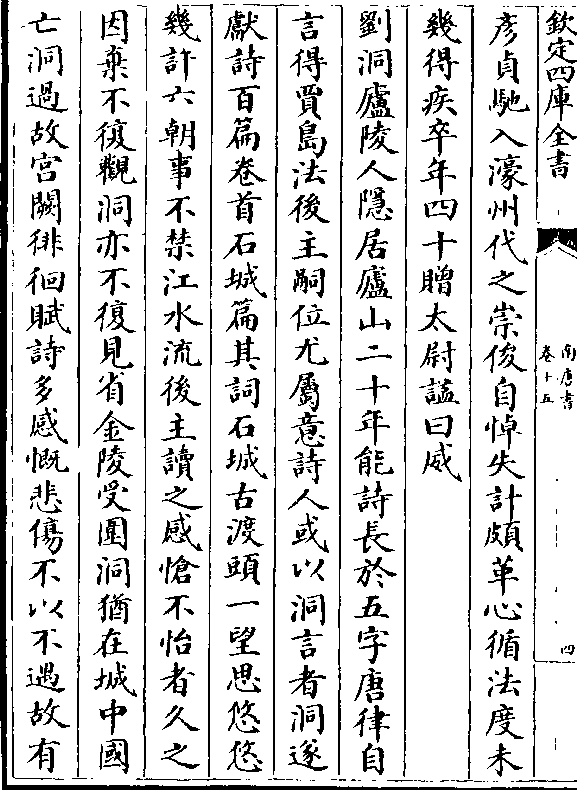 欽定四庫全書
南唐書
卷十五
四
彦貞馳入濠州代之崇俊自悼失計頗革心循法度未
幾得疾卒年四十贈太尉諡曰威
劉洞廬陵人隱居廬山二十年能詩長於五字唐律自
言得賈島法後主嗣位尤屬意詩人或以洞言者洞遂
獻詩百篇卷首石城篇其詞石城古渡頭一望思悠悠
幾許六朝事不禁江水流後主讀之感愴不怡者久之
因棄不復觀洞亦不復見省金陵受圍洞猶在城中國
亡洞過故宫闕徘徊賦詩多感慨悲傷不以不遇故有